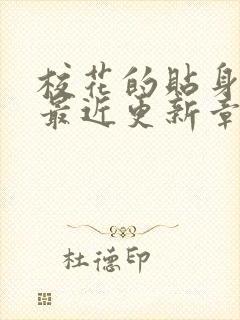 校花的貼身
最近更新章
杜德印